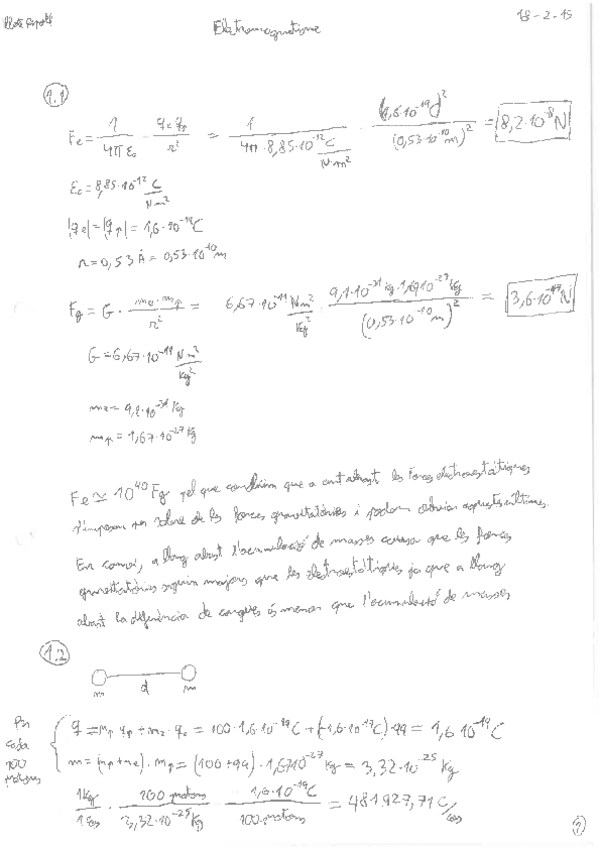 Electromagnetisme
18-2-15
1.1
Fe = 1/(4πε₀) · qe·qp/r² = 1/(4π·8,85·10⁻¹² C/(N·m²)) · (1,6·10⁻¹⁹C)²/(0,53·10⁻¹⁰m)² = 8,2·10⁻⁸N
ε₀ = 8,85·10⁻¹² C/(Nm²)
|qe| = |qp| = 1,6·10⁻¹⁹C
r = 0,53 Å = 0,53·10⁻¹⁰m
Fg = G · me·mp/r² = 6,67·10⁻¹¹ Nm²/Kg² · 9,1·10⁻³¹kg·1,67·10⁻²⁷kg/(0,53·10⁻¹⁰m)² = 3,6·10⁻⁴⁷N
G = 6,67·10⁻¹¹ Nm²/Kg²
me = 9,1·10⁻³¹Kg
mp = 1,67·10⁻²⁷Kg
Fe ≃ 10⁴⁰Fg pel que concloïm que a curt abast les forces electrostàtiques
s'imposen per sobre de les forces gravitatòries i podem obviar aquestes últimes.
En canvi, a llarg abast l'acumulació de masses causa que les forces
gravitatòries siguin majors que les electrostàtiques ja que a llarg
abast la diferència de càrregues és menor que l'acumulació de masses
1.2
m d m
Per cada 100 protons
q = np·qp + ne·qe = 100·1,6·10⁻¹⁹C + (-1,6·10⁻¹⁹C)·99 = 1,6·10⁻¹⁹C
m = (np+ne)·mp = (100+99)·1,67·10⁻²⁷kg = 3,32·10⁻²⁵Kg
1Kg/1cos · 100 protons/3,32·10⁻²⁵Kg · 1,6·10⁻¹⁹C/100 protons = 481.927,71 C/cos